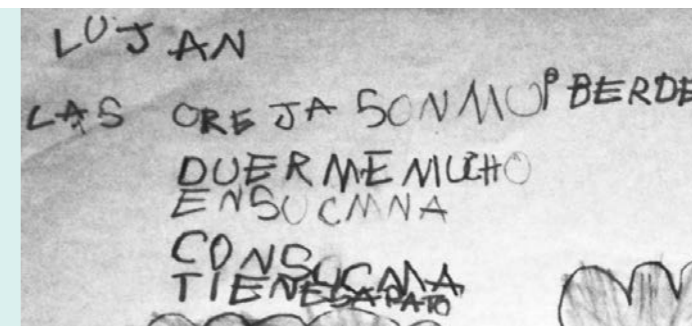 LUJAN
LAS OREJA SON MUP BERDE
DUERME MUCHO
ENSUCMNA
CONSUCMA
TIENESAPATO